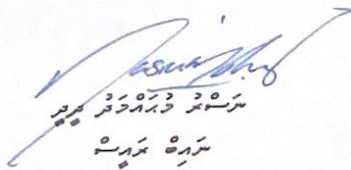 ނަސްރު މުޙައްމަދު ދީދީ
ނައިބް ރައީސް